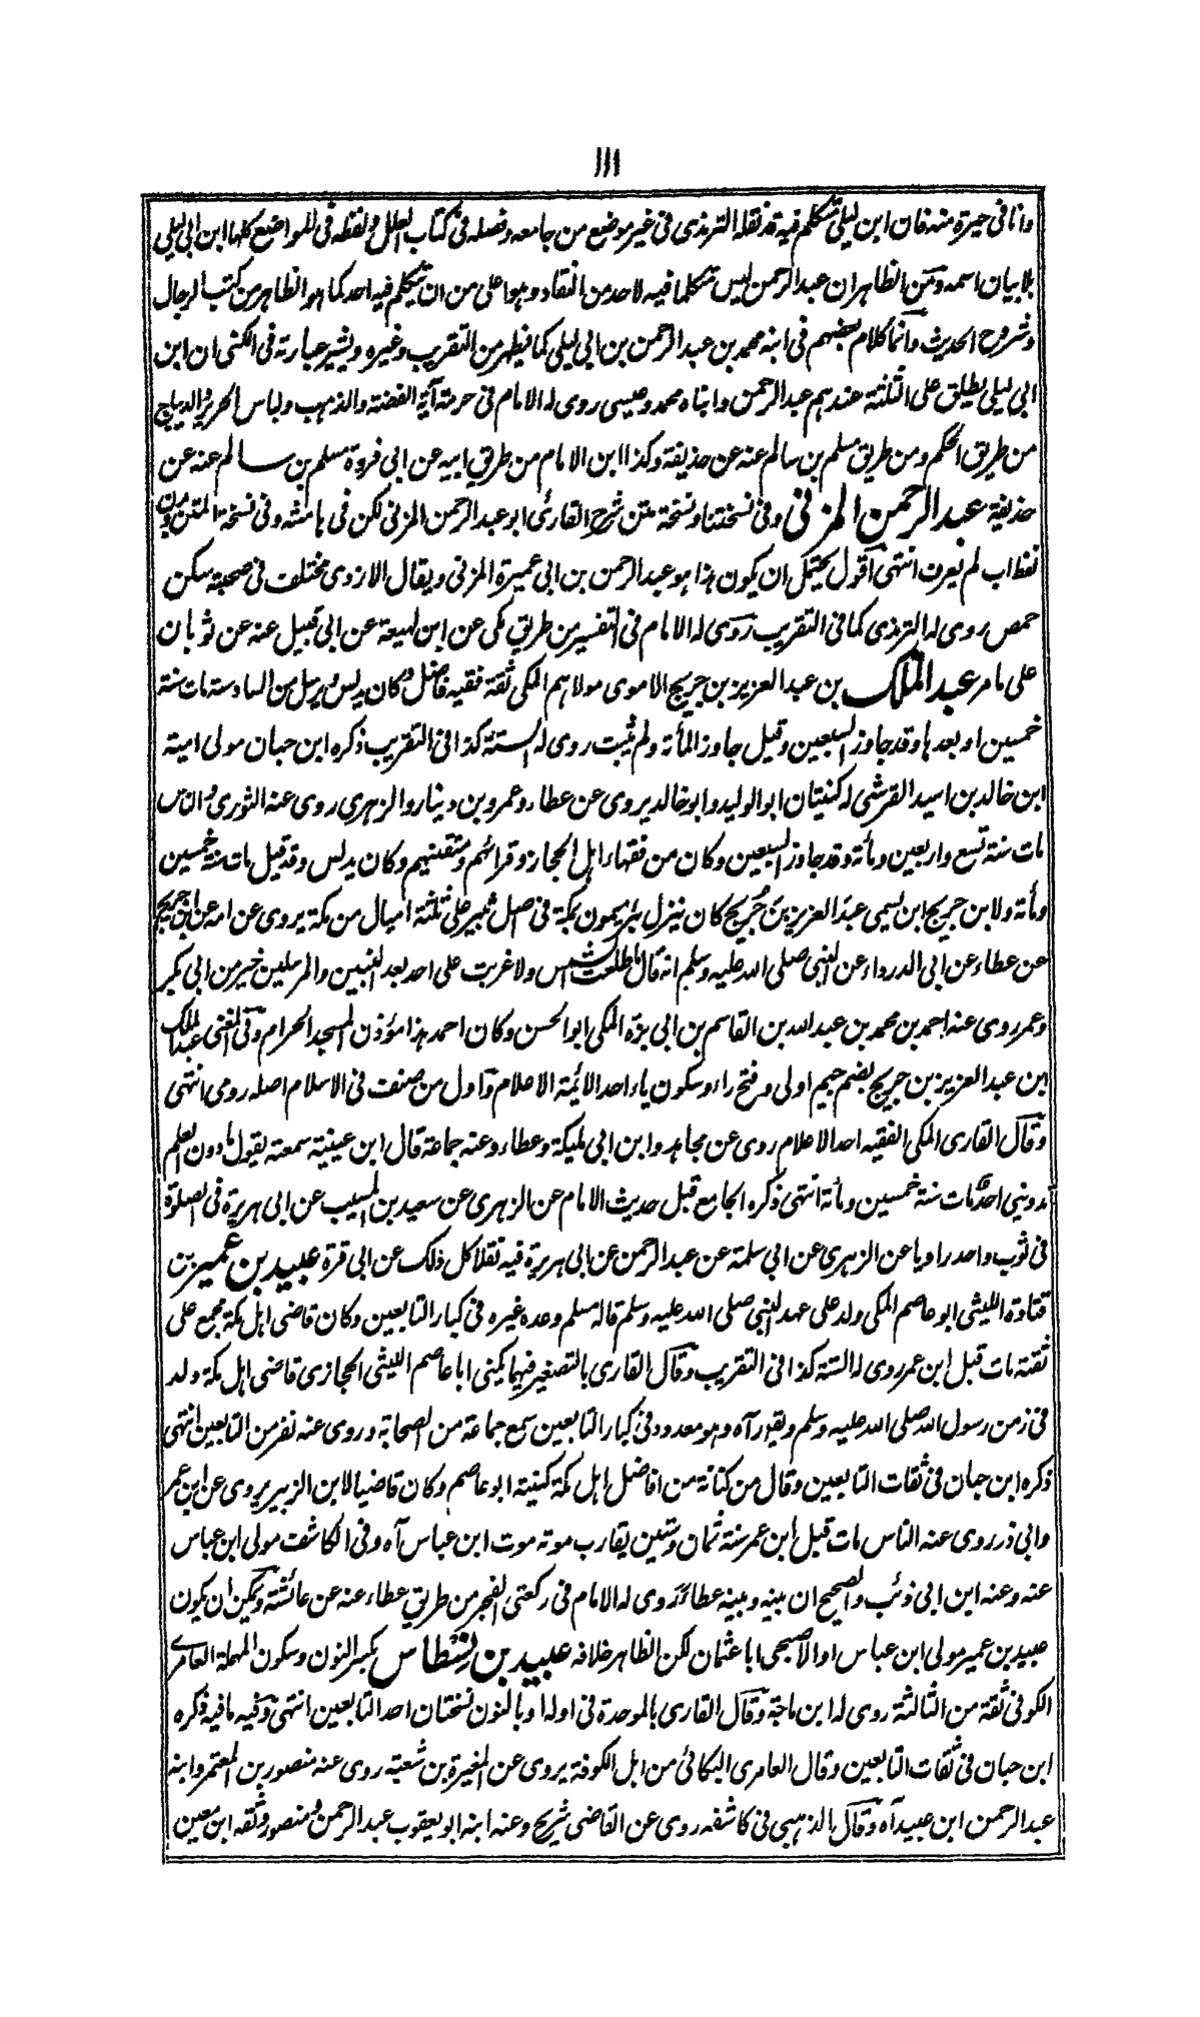 ١١١
وانا فى حيرة منه فان ابن ليلى تكلم فيه قد نقله الترمذى فى غير موضع من جامعه وفصله فى كتاب العلل ولفظه فى المواضع كلها ابن ابى ليلى
بلا بيان اسمه ومن الظاهر ان عبد الرحمن ليس متكلما فيه لاحد من النقاد وهو اعلى من ان يتكلم فيه احد كما هو الظاهر من كتب الرجال
وشروح الحديث وانما كلام بعضهم فى ابنه محمد بن عبد الرحمن بن ابى ليلى كما يظهر من التقريب وغيره ويشير عبارته فى الكنى ان ابن
ابى ليلى يطلق على الثلثة عندهم عبد الرحمن وابناه محمد وعيسى روى له الامام فى حرمة آنية الفضة والذهب ولباس الحرير والديباج
من طريق الحكم ومن طريق مسلم بن سالم عنه عن حذيفة وكذا ابن الامام من طريق ابيه عن ابى فروة مسلم بن سالم عنه عن
حذيفة عبد الرحمن المزنى وفى نسختنا ونسخة متن شرح القارئ ابو عبد الرحمن المزنى لكن فى هامشه وفى نسخة المتن بدون
لفظ اب لم يعرف انتهى اقول يحتمل ان يكون هذا هو عبد الرحمن بن ابى عميرة المزنى ويقال الازدى مختلف فى صحبته سكن
حمص روى له الترمذى كما فى التقريب روى له الامام فى التفسير من طريق مكى عن ابن لهيعة عن ابى قبيل عنه عن ثوبان
على ما مر عبد الملك بن عبد العزيز بن جريج الاموى مولاهم المكى ثقة فقيه فاضل وكان يدلس ويرسل من السادسة مات سنة
خمسين او بعدها وقد جاوز السبعين وقيل جاوز المأئة ولم يثبت روى له الستة كذا فى التقريب ذكره ابن حبان مولى امية
ابن خالد بن اسيد القرشى له كنيتان ابو الوليد وابو خالد يروى عن عطاء وعمرو بن دينار والزهرى روى عنه الثورى والناس
مات سنة تسع واربعين ومأئة وقد جاوز السبعين وكان من فقهاء اهل الحجاز وقرائهم ومتقنيهم وكان يدلس وقد قيل مات سنة خمسين
ومأئة ولابن جريج ابن يسمى عبد العزيز بن جريج كان ينزل بئر ميمون بمكة فى اصل ثبير على ثلثة اميال من مكة يروى عن امه عن ابن جريج
عن عطاء عن ابى الدرداء عن النبى صلى الله عليه وسلم انه قال ما طلعت الشمس ولا غربت على احد بعد النبيين والمرسلين خير من ابى بكر
وعمر روى عنه احمد بن محمد بن عبد الله بن القاسم بن ابى بزة المكى ابو الحسن وكان احمد هذا مؤذن المسجد الحرام وفى المغنى عبد الملك
ابن عبد العزيز بن جريج بضم جيم اولى وفتح راء وسكون ياء احد الائمة الاعلام واول من صنف فى الاسلام اصله رومى انتهى
وقال القارى المكى الفقيه احد الاعلام روى عن مجاهد وابن ابى مليكة وعطاء وعنه جماعة قال ابن عيينة سمعته يقول ما دون العلم
تدوينى احد مات سنة خمسين ومأئة انتهى ذكره الجامع قبل حديث الامام عن الزهرى عن سعيد بن المسيب عن ابى هريرة فى الصلوة
فى ثوب واحد راويا عن الزهرى عن ابى سلمة عن عبد الرحمن عن ابى هريرة فيه نقلا كل ذلك عن ابى قرة عبيد بن عمير بن
قتادة الليثى ابو عاصم المكى ولد على عهد النبى صلى الله عليه وسلم قاله مسلم وعده غيره فى كبار التابعين وكان قاضى اهل مكة مجمع على
ثقته مات قبل ابن عمر روى له الستة كذا فى التقريب وقال القارى بالتصغير فيهما يكنى ابا عاصم الليثى الحجازى قاضى اهل مكة ولد
فى زمن رسول الله صلى الله عليه وسلم ويقال رآه وهو معدود فى كبار التابعين سمع جماعة من الصحابة وروى عنه نفر من التابعين انتهى
ذكره ابن حبان فى ثقات التابعين وقال من كنانة من افاضل اهل مكة كنيته ابو عاصم وكان قاضيا لابن الزبير يروى عن ابن عمر
وابى ذر روى عنه الناس مات قبل ابن عمر سنة ثمان وستين يقارب موته موت ابن عباس آه وفى الكاشف مولى ابن عباس
عنه وعنه ابن ابى ذئب والصحيح ان بينه وبينه عطاء روى له الامام فى ركعتى الفجر من طريق عطاء عنه عن عائشة ويمكن ان يكون
عبيد بن عمير مولى ابن عباس او الاصبحى ابا عثمان لكن الظاهر خلافه عبيد بن نسطاس بكسر النون وسكون المهملة العامرى
الكوفى ثقة من الثالثة روى له ابن ماجة وقال القارى بالموحدة فى اوله او بالنون نسختان احد التابعين انتهى وفيه ما فيه ذكره
ابن حبان فى ثقات التابعين وقال العامرى البكائى من اهل الكوفة يروى عن المغيرة بن شعبة روى عنه منصور بن المعتمر وابنه
عبد الرحمن ابن عبيد آه وقال الذهبى فى كاشفه روى عن القاضى شريح وعنه ابنه ابو يعقوب عبد الرحمن ومنصور وثقه ابن معين